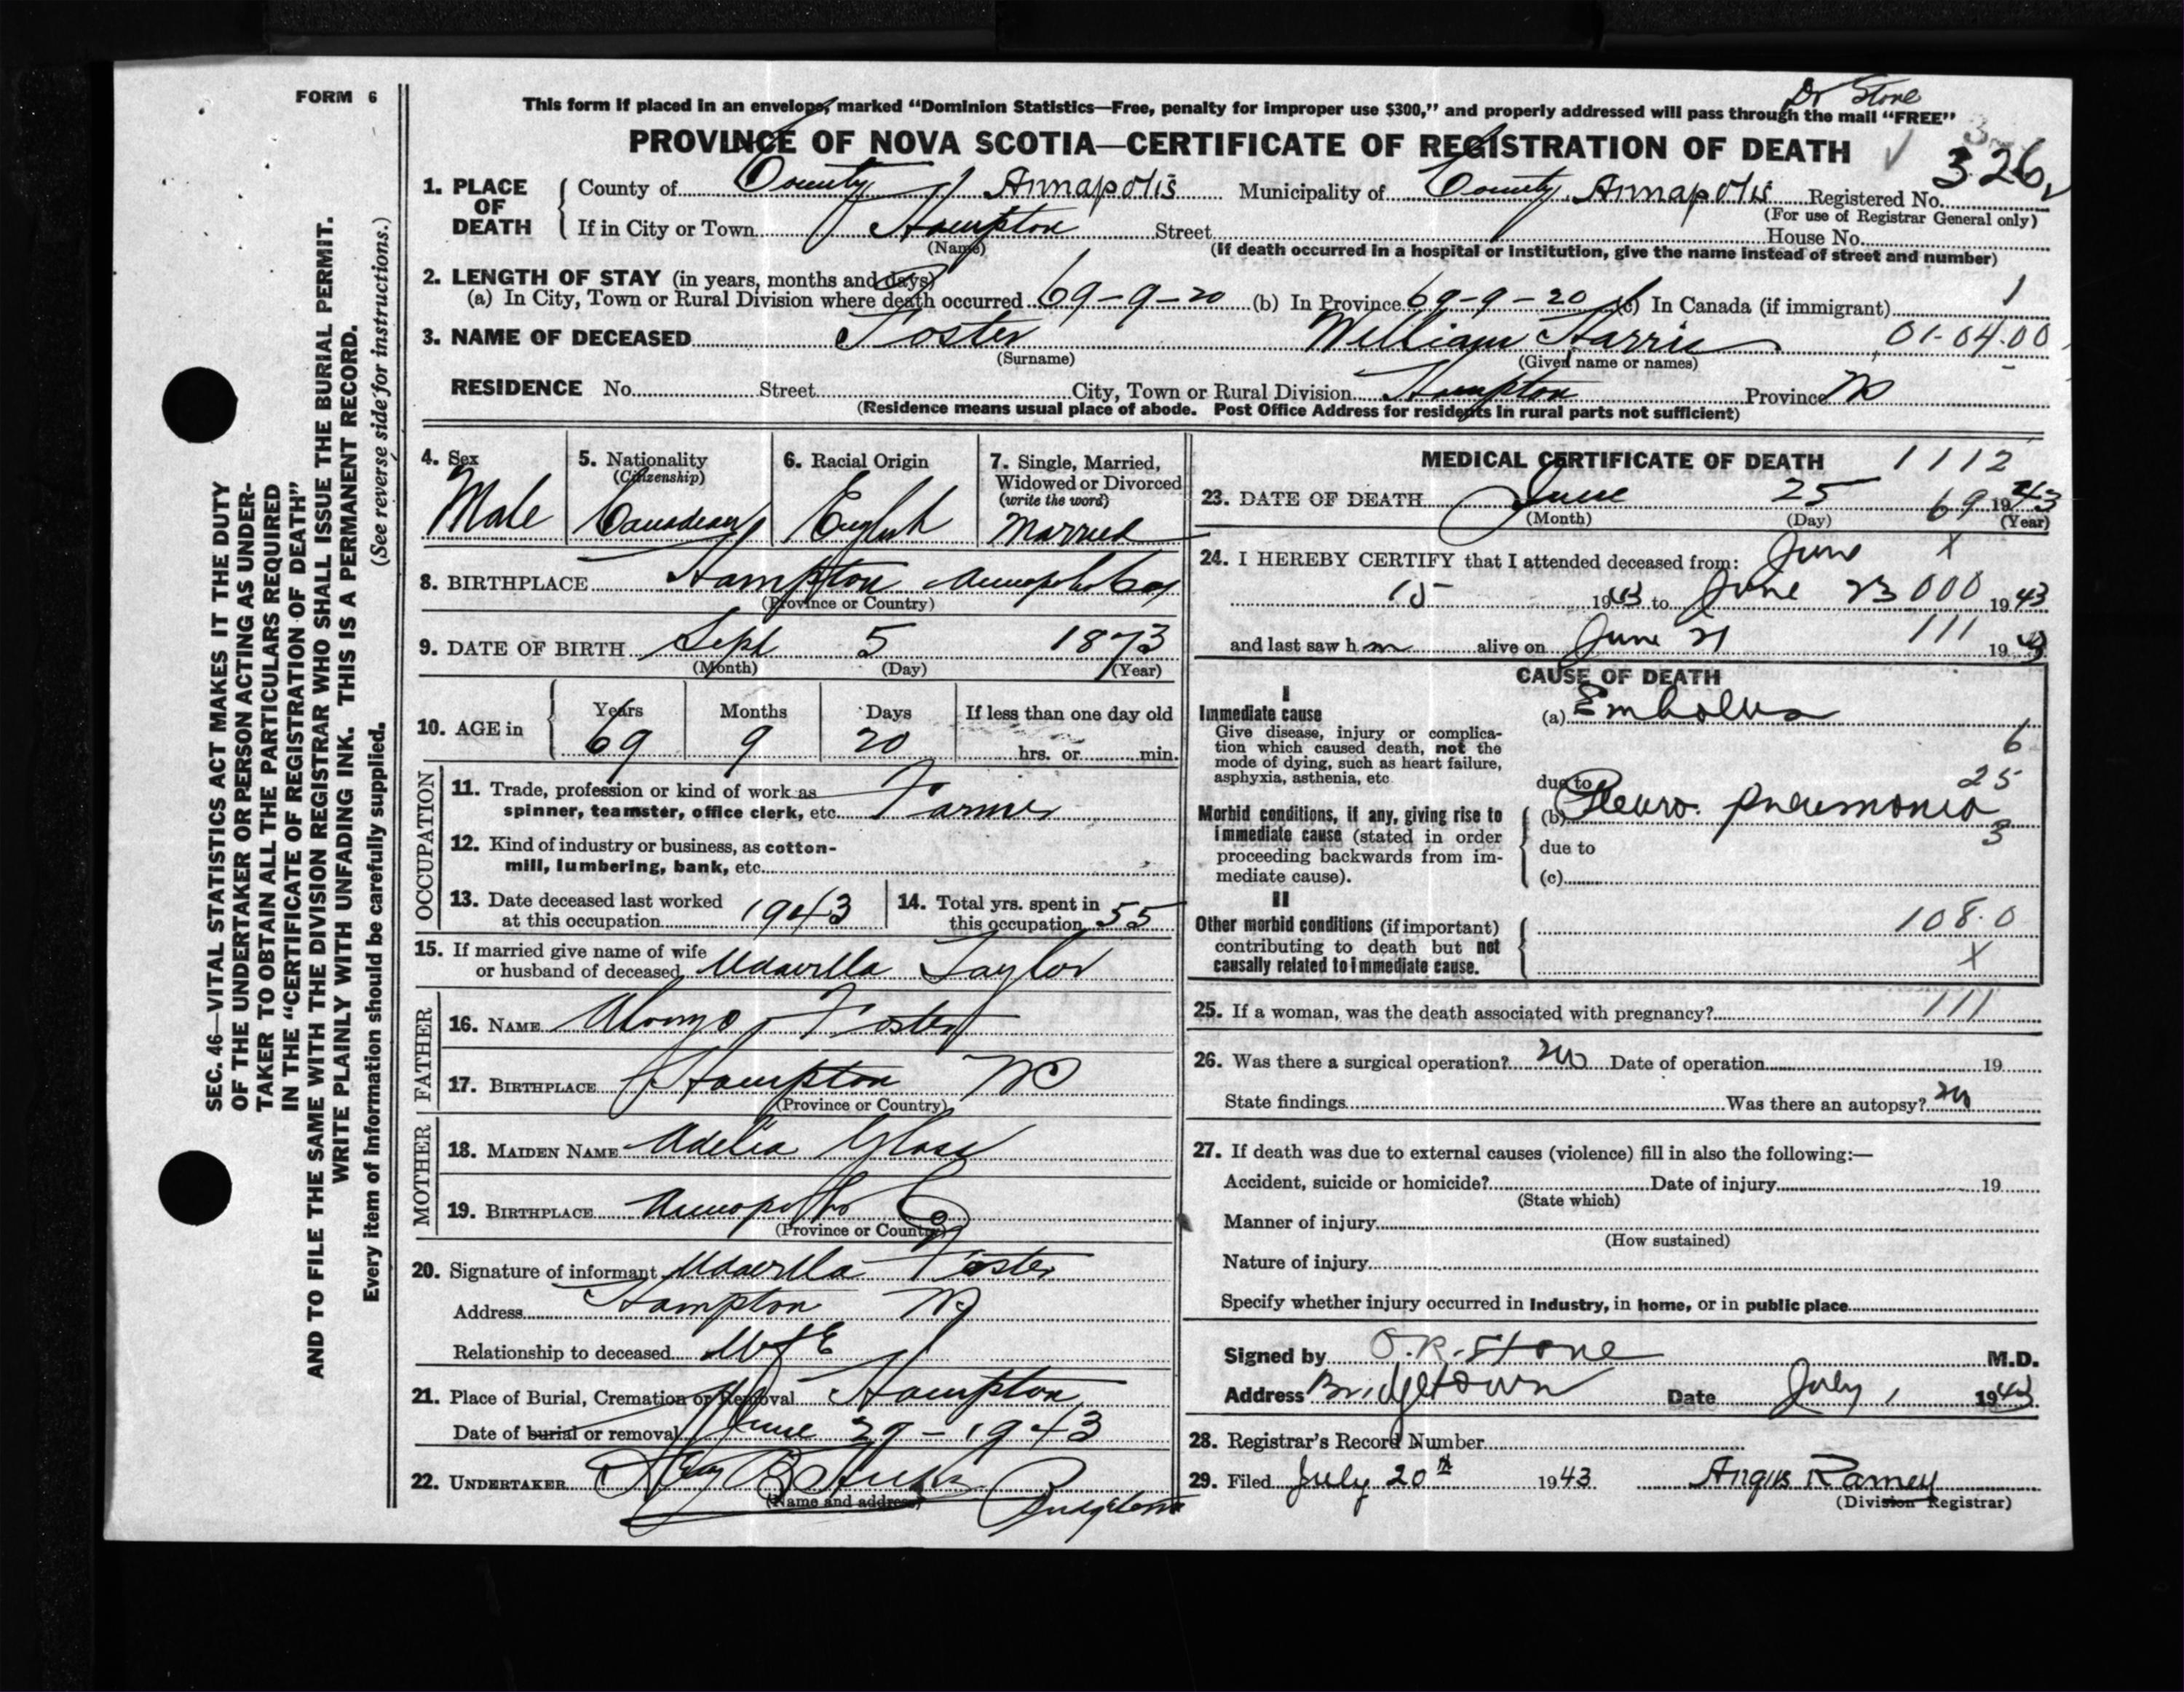 FORM 6
Dr Stone
This form if placed in an envelope, marked “Dominion Statistics—Free, penalty for improper use $300,” and properly addressed will pass through the mail “FREE”
PROVINCE OF NOVA SCOTIA—CERTIFICATE OF REGISTRATION OF DEATH
326
1. PLACE OF DEATH
County of County Annapolis Municipality of County Annapolis Registered No.
(For use of Registrar General only)
If in City or Town Hampton Street House No.
(Name) (If death occurred in a hospital or institution, give the name instead of street and number)
2. LENGTH OF STAY (in years, months and days)
(a) In City, Town or Rural Division where death occurred 69-9-20 (b) In Province 69-9-20 (c) In Canada (if immigrant) 1
3. NAME OF DECEASED Foster William Harris 01-04-00
(Surname) (Given name or names)
RESIDENCE No. Street City, Town or Rural Division Hampton Province
(Residence means usual place of abode. Post Office Address for residents in rural parts not sufficient)
4. Sex
Male
5. Nationality
(Citizenship)
Canadian
6. Racial Origin
English
7. Single, Married,
Widowed or Divorced
(write the word)
Married
8. BIRTHPLACE Hampton Annapolis Co
(Province or Country)
9. DATE OF BIRTH Sept 5 1873
(Month) (Day) (Year)
10. AGE in
Years Months Days If less than one day old
69 9 20 hrs. or min.
OCCUPATION
11. Trade, profession or kind of work as
spinner, teamster, office clerk, etc. Farmer
12. Kind of industry or business, as cotton-
mill, lumbering, bank, etc.
13. Date deceased last worked
at this occupation 1943
14. Total yrs. spent in
this occupation 55
15. If married give name of wife
or husband of deceased Taylor
FATHER
16. NAME Alonzo Foster
17. BIRTHPLACE Hampton
(Province or Country)
MOTHER
18. MAIDEN NAME Adelia
19. BIRTHPLACE Annapolis Co
(Province or Country)
20. Signature of informant Foster
Address Hampton
Relationship to deceased Wife
21. Place of Burial, Cremation or Removal Hampton
Date of burial or removal June 29-1943
22. UNDERTAKER Bridgetown
(Name and address)
MEDICAL CERTIFICATE OF DEATH 1112
23. DATE OF DEATH June 25 69 1943
(Month) (Day) (Year)
24. I HEREBY CERTIFY that I attended deceased from: June X
15 1943 to June 23 000 1943
and last saw h m alive on June 21 111 1943
CAUSE OF DEATH
I
Immediate cause
Give disease, injury or complica-
tion which caused death, not the
mode of dying, such as heart failure,
asphyxia, asthenia, etc
(a) Embolus
6
due to 25
Morbid conditions, if any, giving rise to
immediate cause (stated in order
proceeding backwards from im-
mediate cause).
(b) Pleuro. pneumonia
3
due to
(c)
II
Other morbid conditions (if important)
contributing to death but not
causally related to immediate cause.
108.0
X
25. If a woman, was the death associated with pregnancy? 111
26. Was there a surgical operation? no Date of operation 19
State findings Was there an autopsy? no
27. If death was due to external causes (violence) fill in also the following:—
Accident, suicide or homicide? Date of injury 19
(State which)
Manner of injury
(How sustained)
Nature of injury
Specify whether injury occurred in industry, in home, or in public place
Signed by O.R. Stone M.D.
Address Bridgetown Date July 1 1943
28. Registrar’s Record Number
29. Filed July 20th 1943 Angus Ramey
(Division Registrar)
SEC. 46—VITAL STATISTICS ACT MAKES IT THE DUTY
OF THE UNDERTAKER OR PERSON ACTING AS UNDER-
TAKER TO OBTAIN ALL THE PARTICULARS REQUIRED
IN THE “CERTIFICATE OF REGISTRATION OF DEATH”
AND TO FILE THE SAME WITH THE DIVISION REGISTRAR WHO SHALL ISSUE THE BURIAL PERMIT.
WRITE PLAINLY WITH UNFADING INK. THIS IS A PERMANENT RECORD.
Every item of information should be carefully supplied. (See reverse side for instructions.)